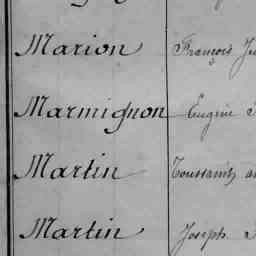 Marion François
Marmignon Eugène
Martin Toussaint
Martin Joseph